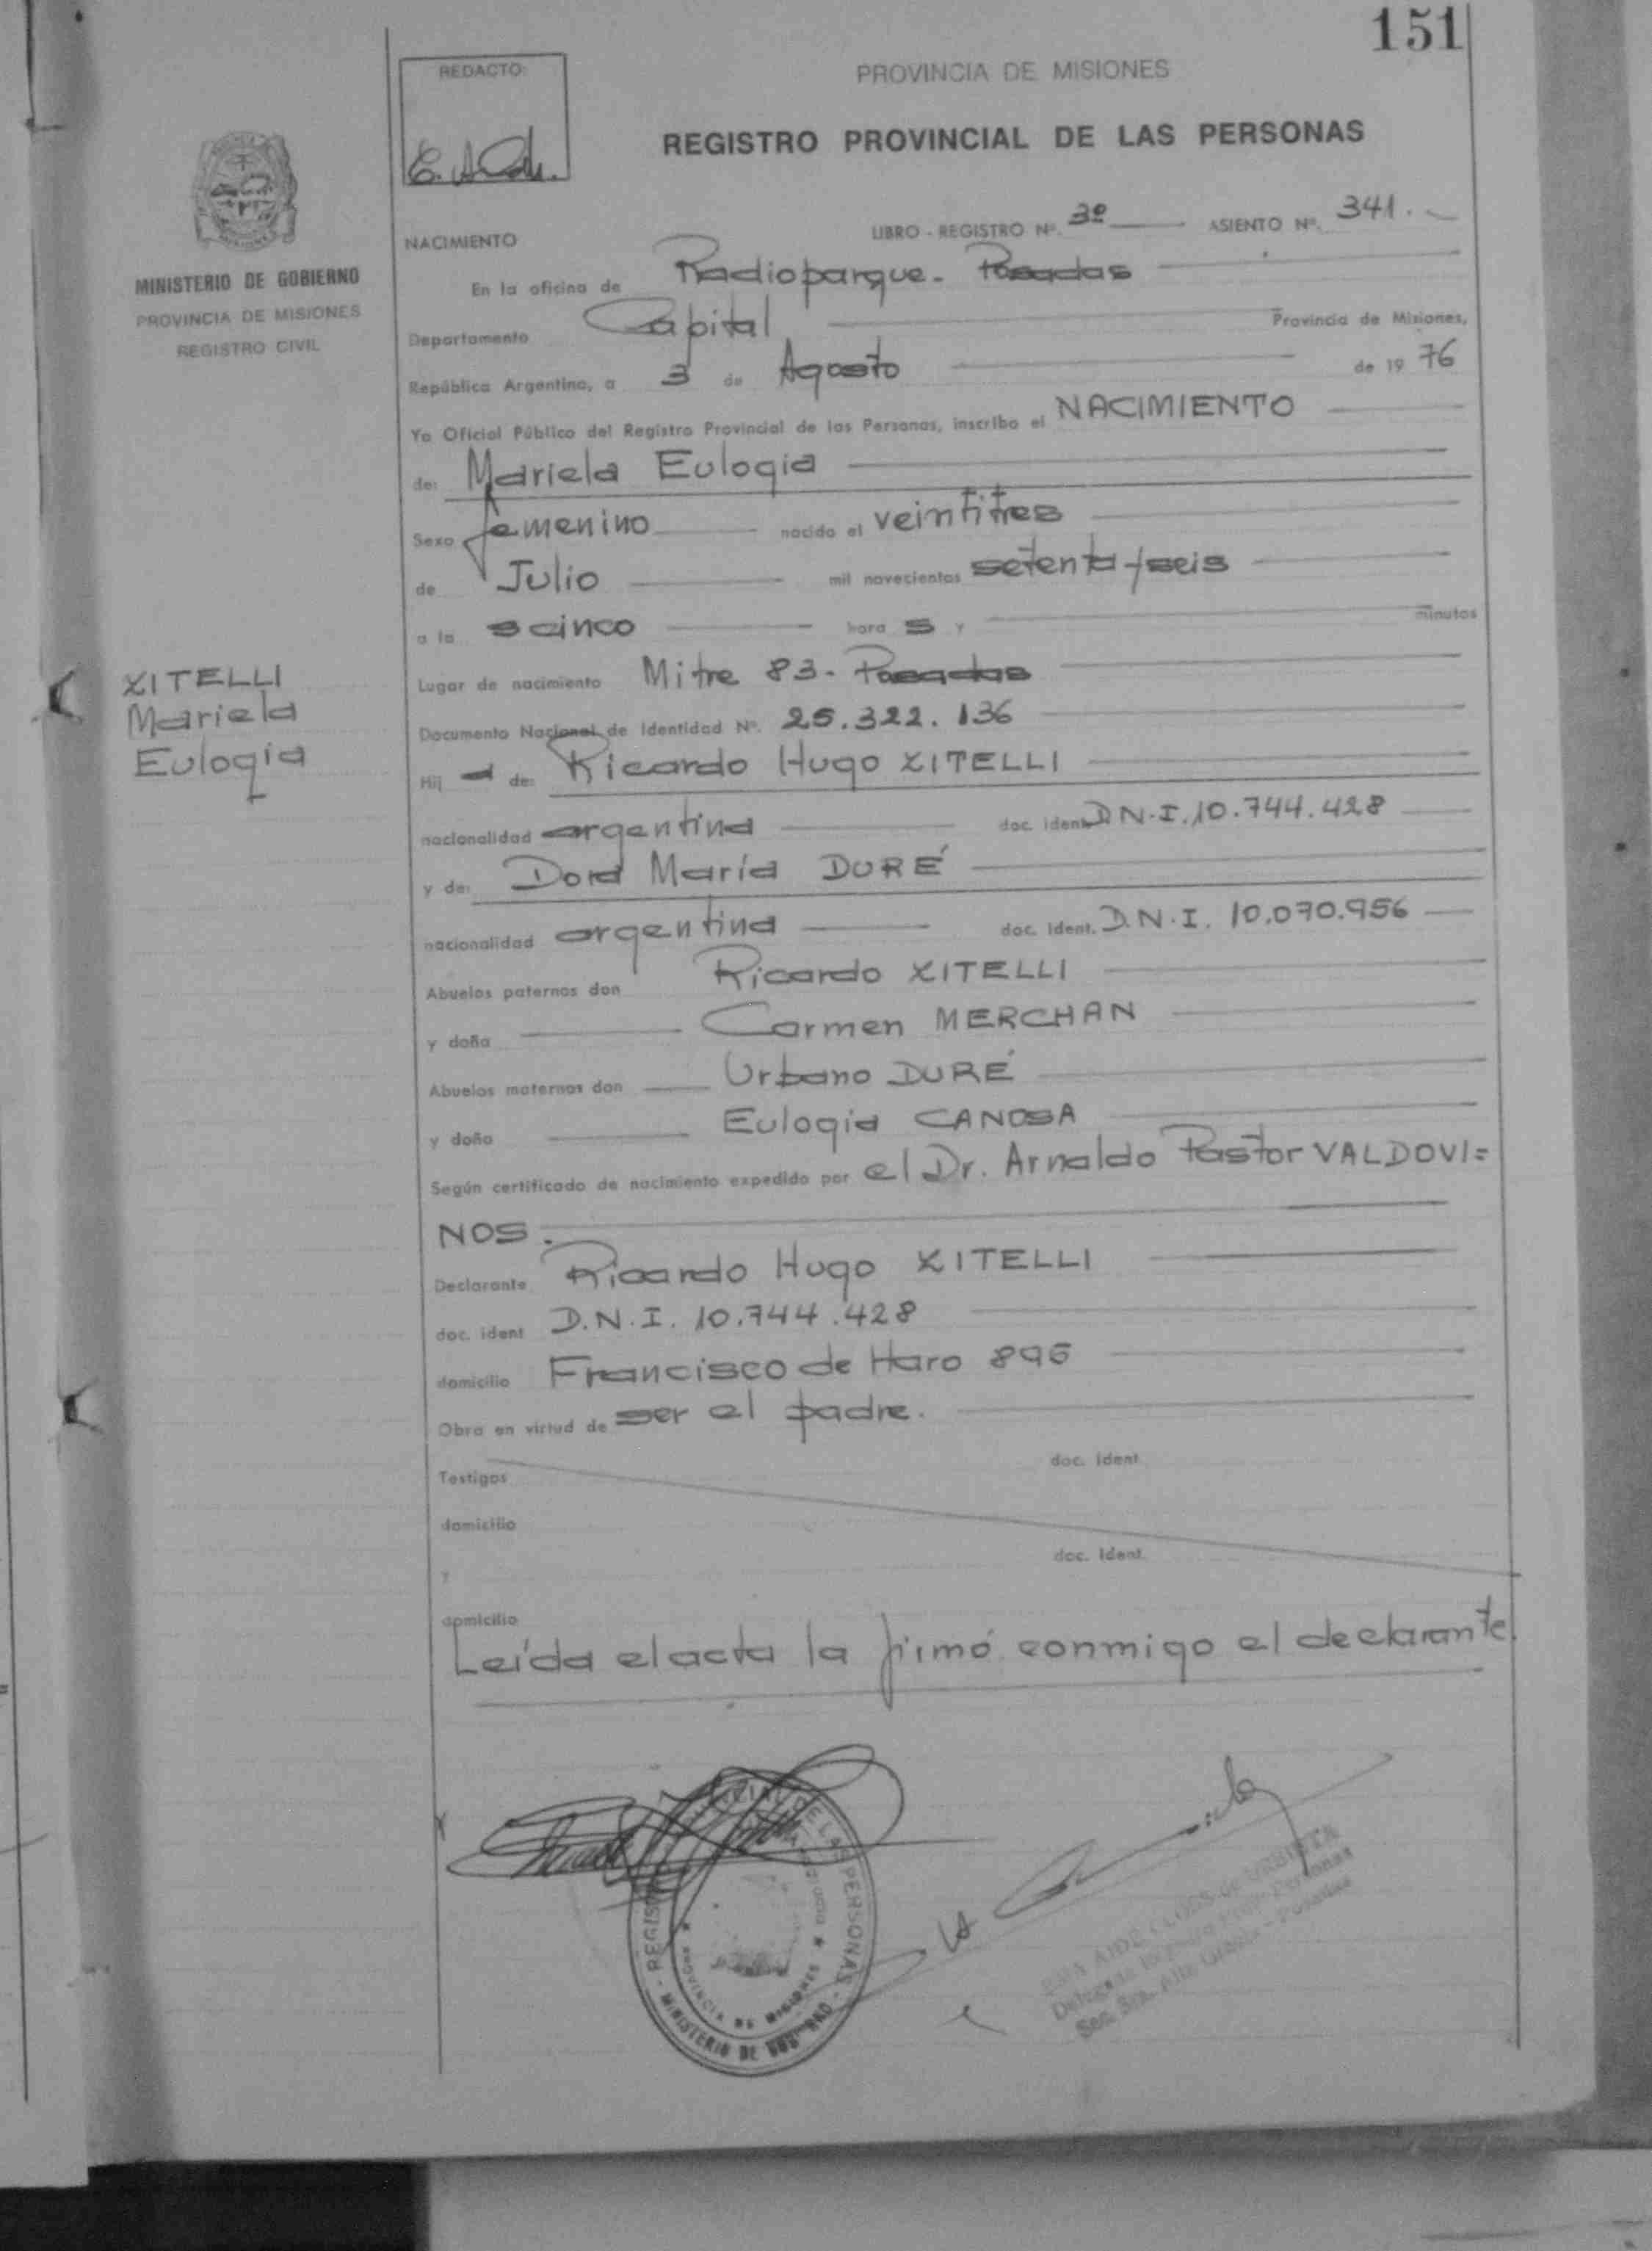 151
REDACTO:
PROVINCIA DE MISIONES
REGISTRO PROVINCIAL DE LAS PERSONAS
MINISTERIO DE GOBIERNO
PROVINCIA DE MISIONES
REGISTRO CIVIL
NACIMIENTO LIBRO - REGISTRO Nº. 3º ASIENTO Nº. 341.
En la oficina de Radioparque - Posadas
Departamento Capital Provincia de Misiones,
República Argentina, a 3 de Agosto de 19 76
Yo Oficial Público del Registro Provincial de las Personas, inscribo el NACIMIENTO
de: Mariela Eulogia
Sexo femenino nacido el veintitres
de Julio mil novecientos setenta y seis
a la s cinco hora s y minutos
Lugar de nacimiento Mitre 83 - Posadas
XITELLI
Mariela
Eulogia
Documento Nacional de Identidad Nº. 25.322.136
Hij a de: Ricardo Hugo XITELLI
nacionalidad argentina doc. ident. D.N.I. 10.744.428
y de: Dora María DURÉ
nacionalidad argentina doc. ident. D.N.I. 10.070.956
Abuelos paternos don Ricardo XITELLI
y doña Carmen MERCHAN
Abuelos maternos don Urbano DURÉ
y doña Eulogia CANOSA
Según certificado de nacimiento expedido por el Dr. Arnaldo Pastor VALDOVI=
NOS.
Declarante Ricardo Hugo XITELLI
doc. ident D.N.I. 10.744.428
domicilio Francisco de Haro 895
Obra en virtud de ser el padre.
Testigos doc. ident.
domicilio
y doc. ident.
domicilio
Leída el acta la firmó conmigo el declarante.
REGISTRO PROVINCIAL DE LAS PERSONAS
PROVINCIA DE MISIONES
MINISTERIO DE